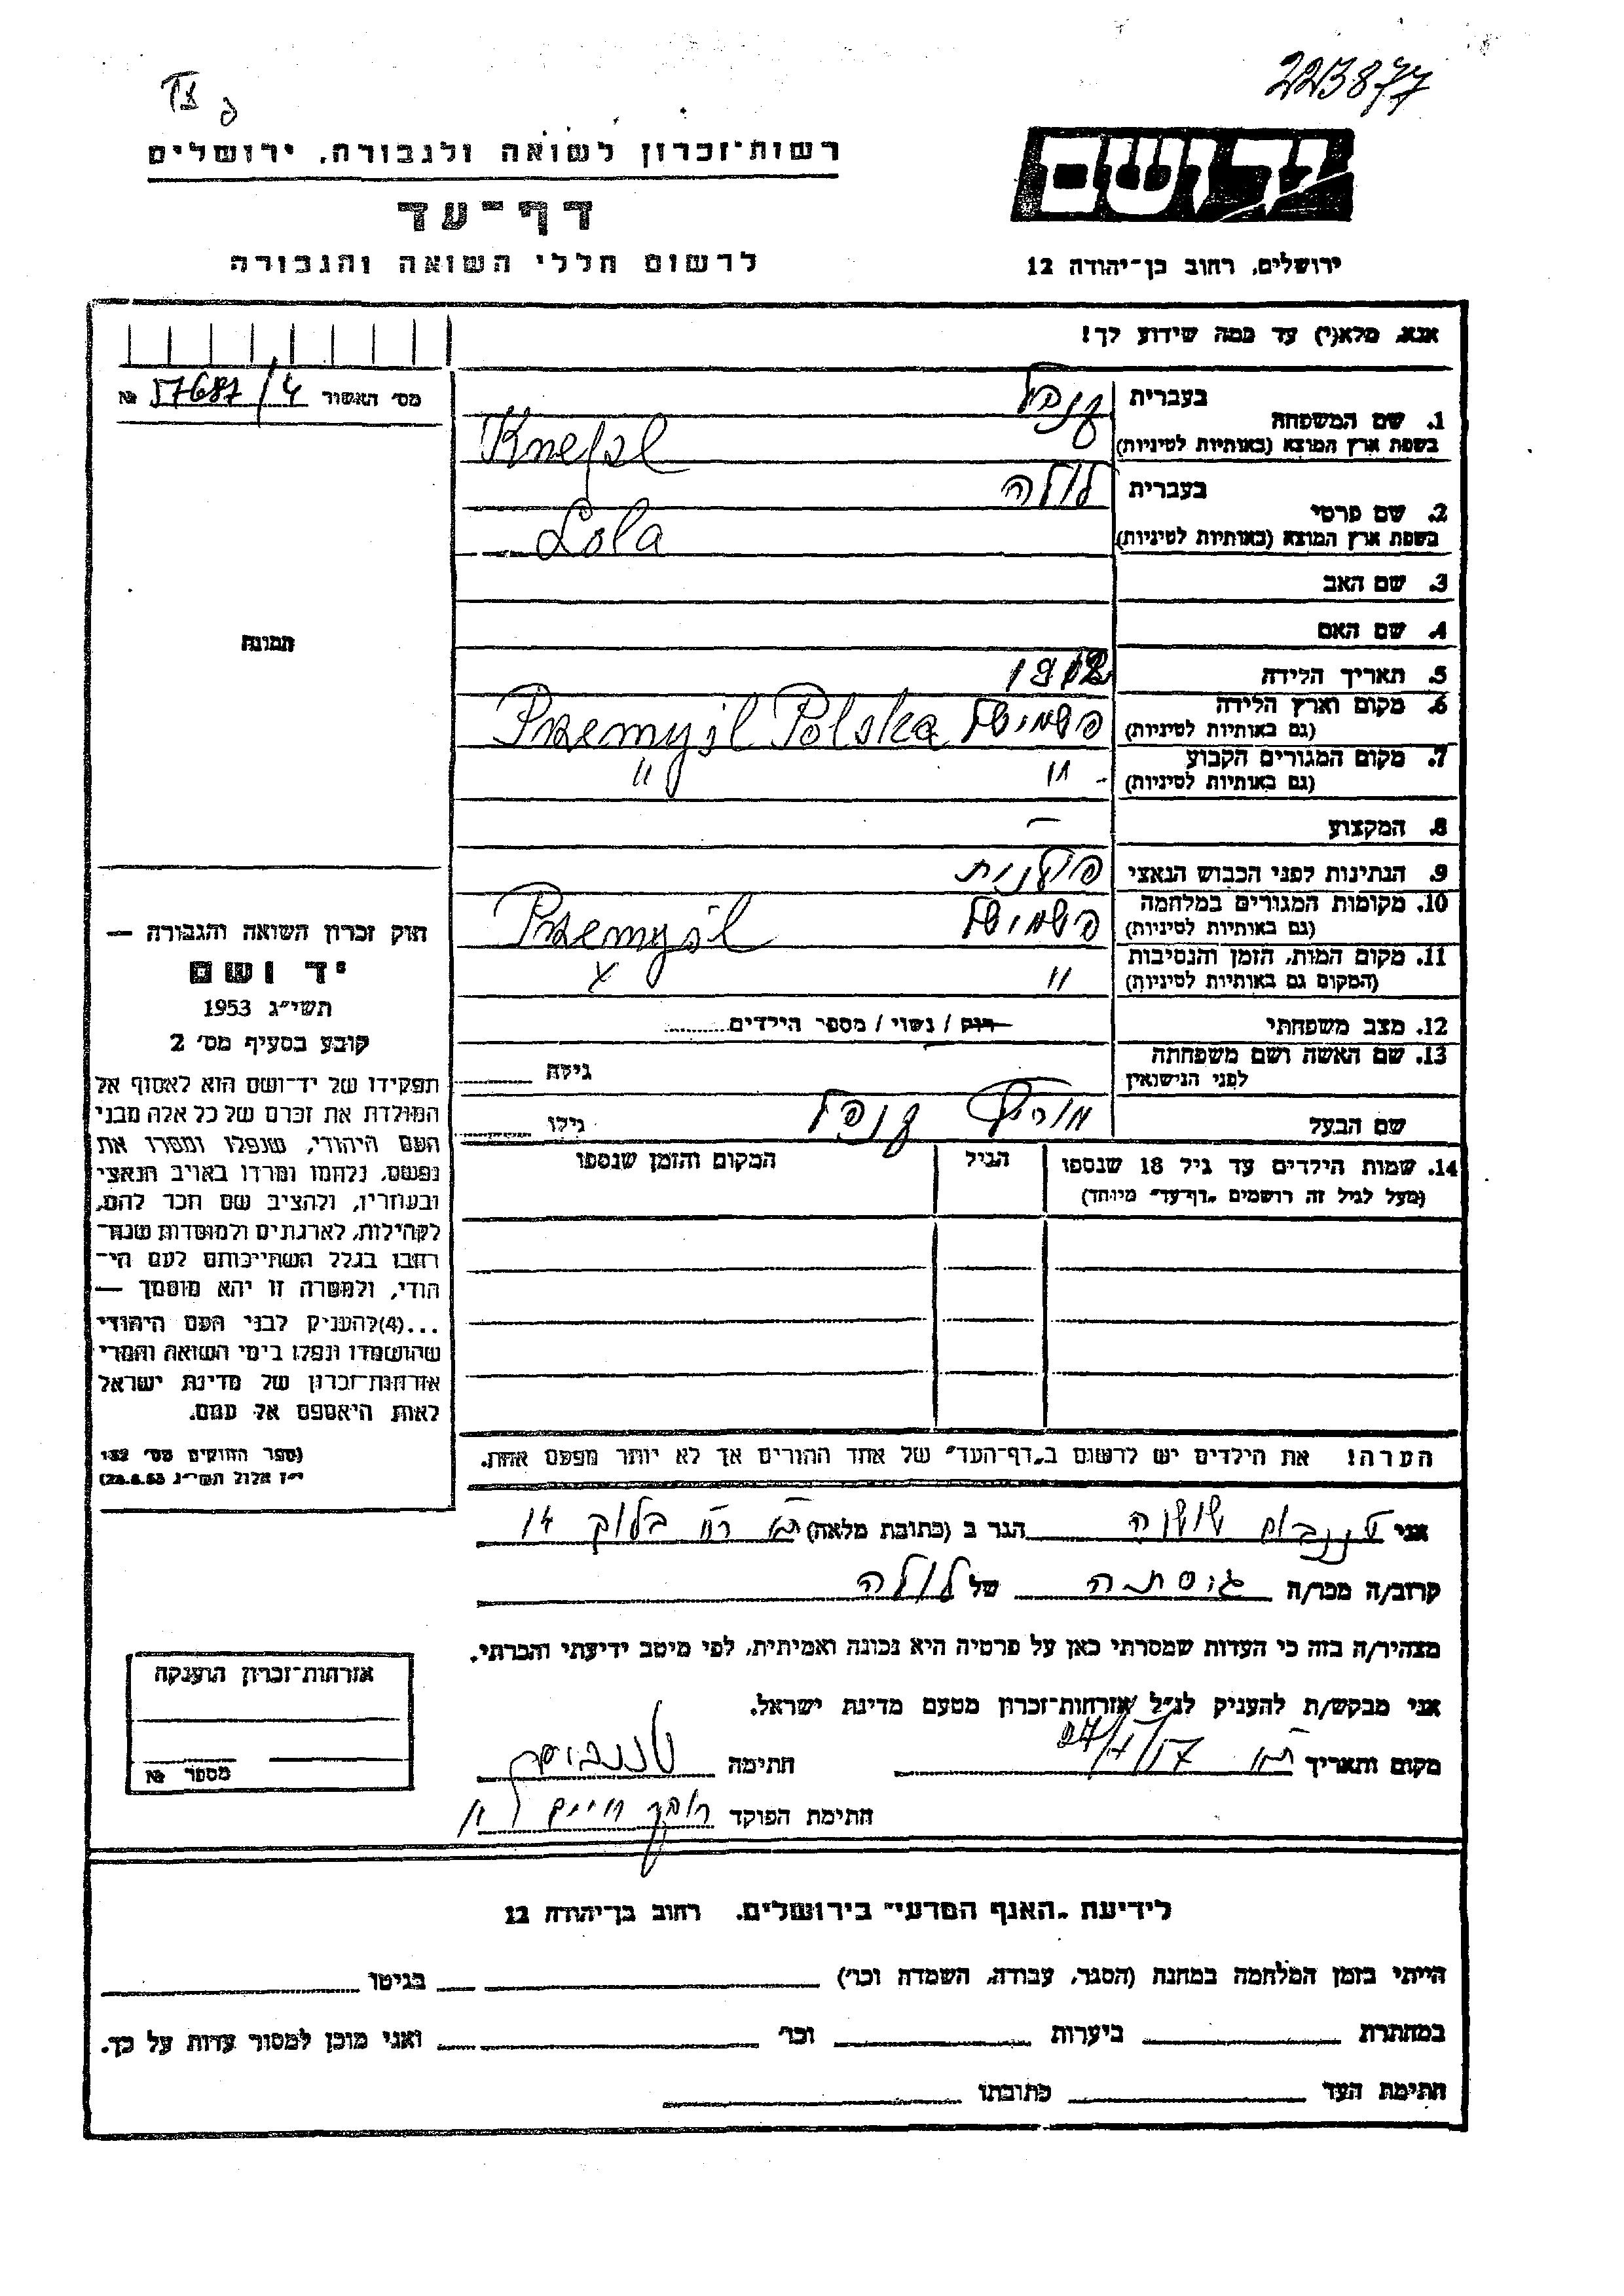 223877
רשות־זכרון לשואה ולגבורה, ירושלים
דף־עד
לרשום חללי השואה והגבורה
יד ושם
ירושלים, רחוב בן־יהודה 12
אנא, מלא(י) עד כמה שידוע לך!
מס' האשור 57687/4 №
תמונה
1. שם המשפחה
בעברית קנפל
בשפת ארץ המוצא (באותיות לטיניות) Knefel
2. שם פרטי
בעברית לולה
בשפת ארץ המוצא (באותיות לטיניות) Lola
3. שם האב
4. שם האם
5. תאריך הלידה 1912
6. מקום וארץ הלידה
(גם באותיות לטיניות) פשמישל Przemyśl Polska
7. מקום המגורים הקבוע
(גם באותיות לטיניות) " "
8. המקצוע —
9. הנתינות לפני הכבוש הנאצי פולנית
10. מקומות המגורים במלחמה
(גם באותיות לטיניות) פשמישל Przemyśl
11. מקום המות, הזמן והנסיבות
(המקום גם באותיות לטיניות) " x
12. מצב משפחתי רוק / נשוי / מספר הילדים
13. שם האשה ושם משפחתה
לפני הנישואין גילה
שם הבעל קנפל גילו
14. שמות הילדים עד גיל 18 שנספו
(מעל לגיל זה רושמים „דף־עד" מיוחד)
הגיל
המקום והזמן שנספו
חוק זכרון השואה והגבורה —
יד ושם
תשי"ג 1953
קובע בסעיף מס' 2
תפקידו של יד־ושם הוא לאסוף אל
המולדת את זכרם של כל אלה מבני
העם היהודי, שנפלו ומסרו את
נפשם, נלחמו ומרדו באויב הנאצי
ובעוזריו, ולהציב שם וזכר להם,
לקהילות, לארגונים ולמוסדות שנח־
רבו בגלל השתייכותם לעם הי־
הודי, ולמטרה זו יהא מוסמך —
...(4)להעניק לבני העם היהודי
שהושמדו ונפלו בימי השואה והמרי
אזרחות־זכרון של מדינת ישראל
לאות היאספם אל עמם.
(ספר החוקים מס' 132
י"ז אלול תשי"ג 28.8.53)
הערה! את הילדים יש לרשום ב„דף־העד" של אחד ההורים אך לא יותר מפעם אחת.
אני טננבום שושנה הגר ב (כתובת מלאה) בלוק 14
קרוב/ה מכר/ה גיסתה של לולה
מצהיר/ה בזה כי העדות שמסרתי כאן על פרטיה היא נכונה ואמיתית, לפי מיטב ידיעתי והכרתי.
אני מבקש/ת להעניק לנ"ל אזרחות־זכרון מטעם מדינת ישראל.
מקום ותאריך חתימה טננבום
חתימת הפוקד
אזרחות־זכרון הוענקה
מספר №
לידיעת „האגף המדעי" בירושלים, רחוב בן־יהודה 12
הייתי בזמן המלחמה במחנה (הסגר, עבודה, השמדה וכו') בגיטו
במחתרת ביערות וכו' ואני מוכן למסור עדות על כך.
חתימת העד כתובתו